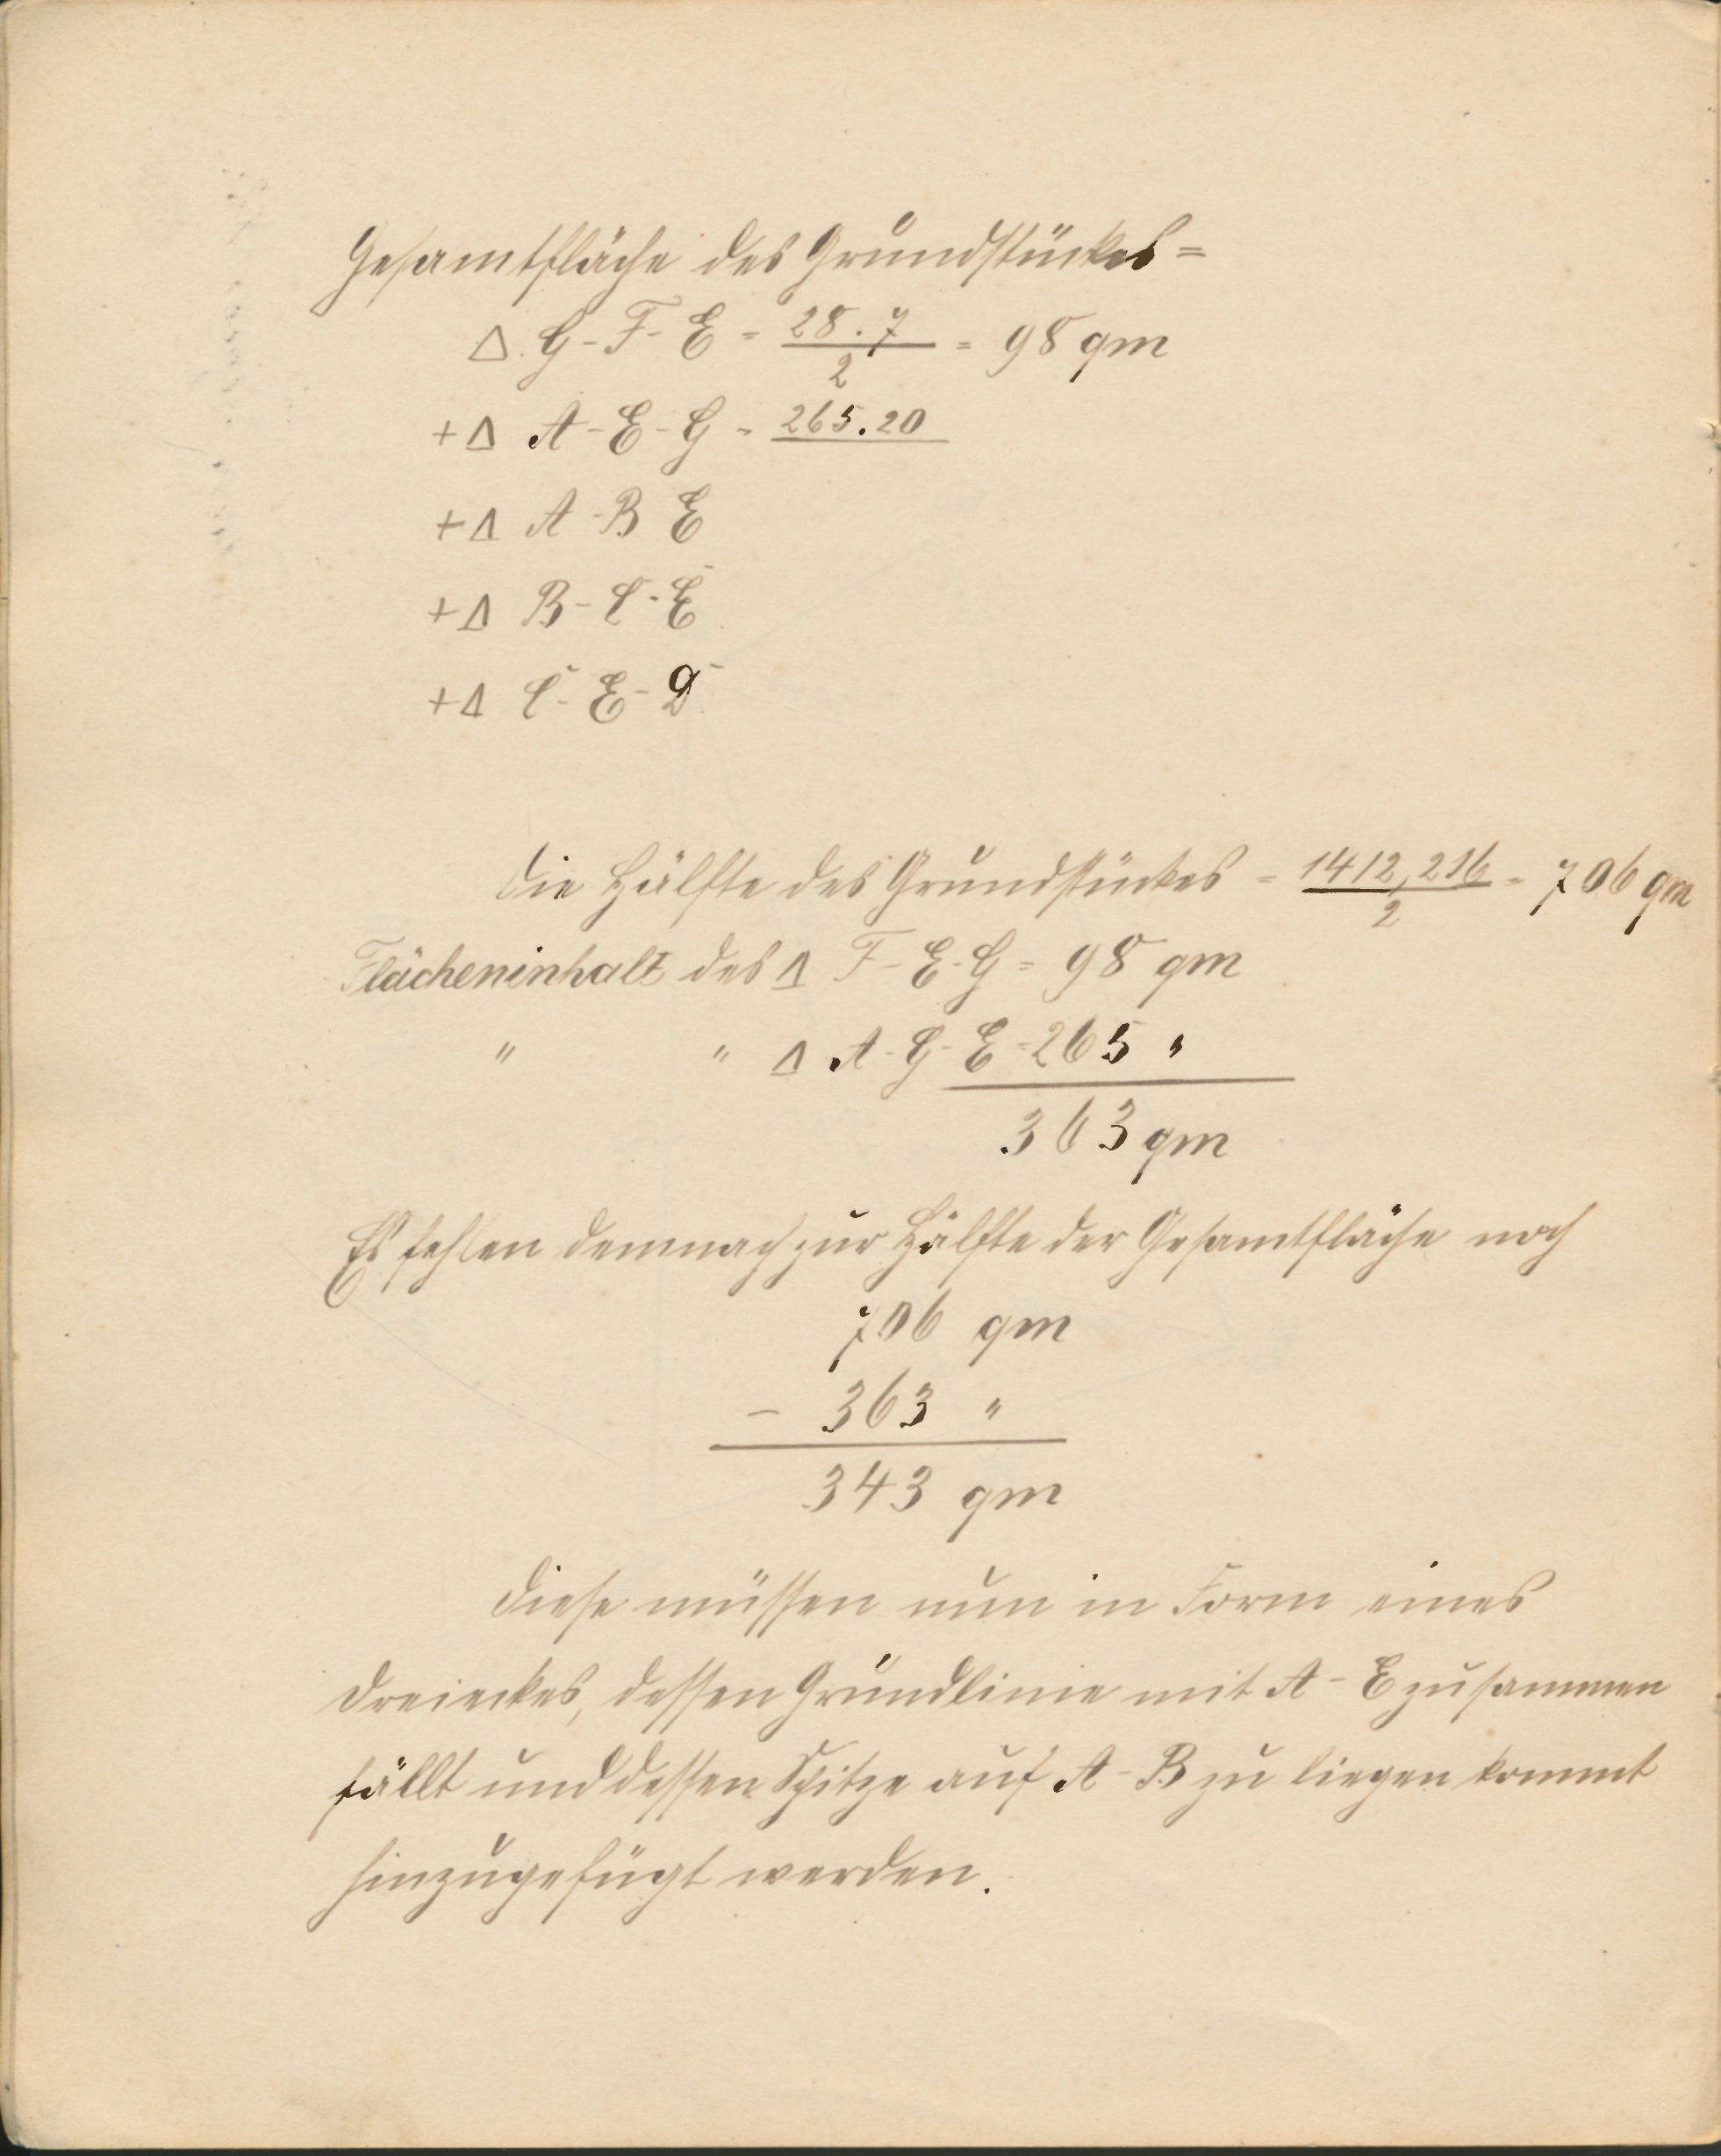 Gesamtfläche des Grundstückes =
Δ. G-F-E = 28.7 / 2 = 98 qm
+Δ A-E-G = 265.20
+Δ A-B E
+Δ B-C-E
+Δ C-E-D
Die Hälfte des Grundstückes = 1412,216 / 2 = 706 qm
Flächeninhalt des Δ F-E-G = 98 qm
" " Δ A-G-E = 265 "
363 qm
Es fehlen demnach zur Hälfte der Gesamtfläche noch
706 qm
- 363 "
343 qm
Diese müssen nun in Form eines
Dreieckes, dessen Grundlinie mit A-E zusammen
fällt und dessen Spitze auf A-B zu liegen kommt
hinzugefügt werden.